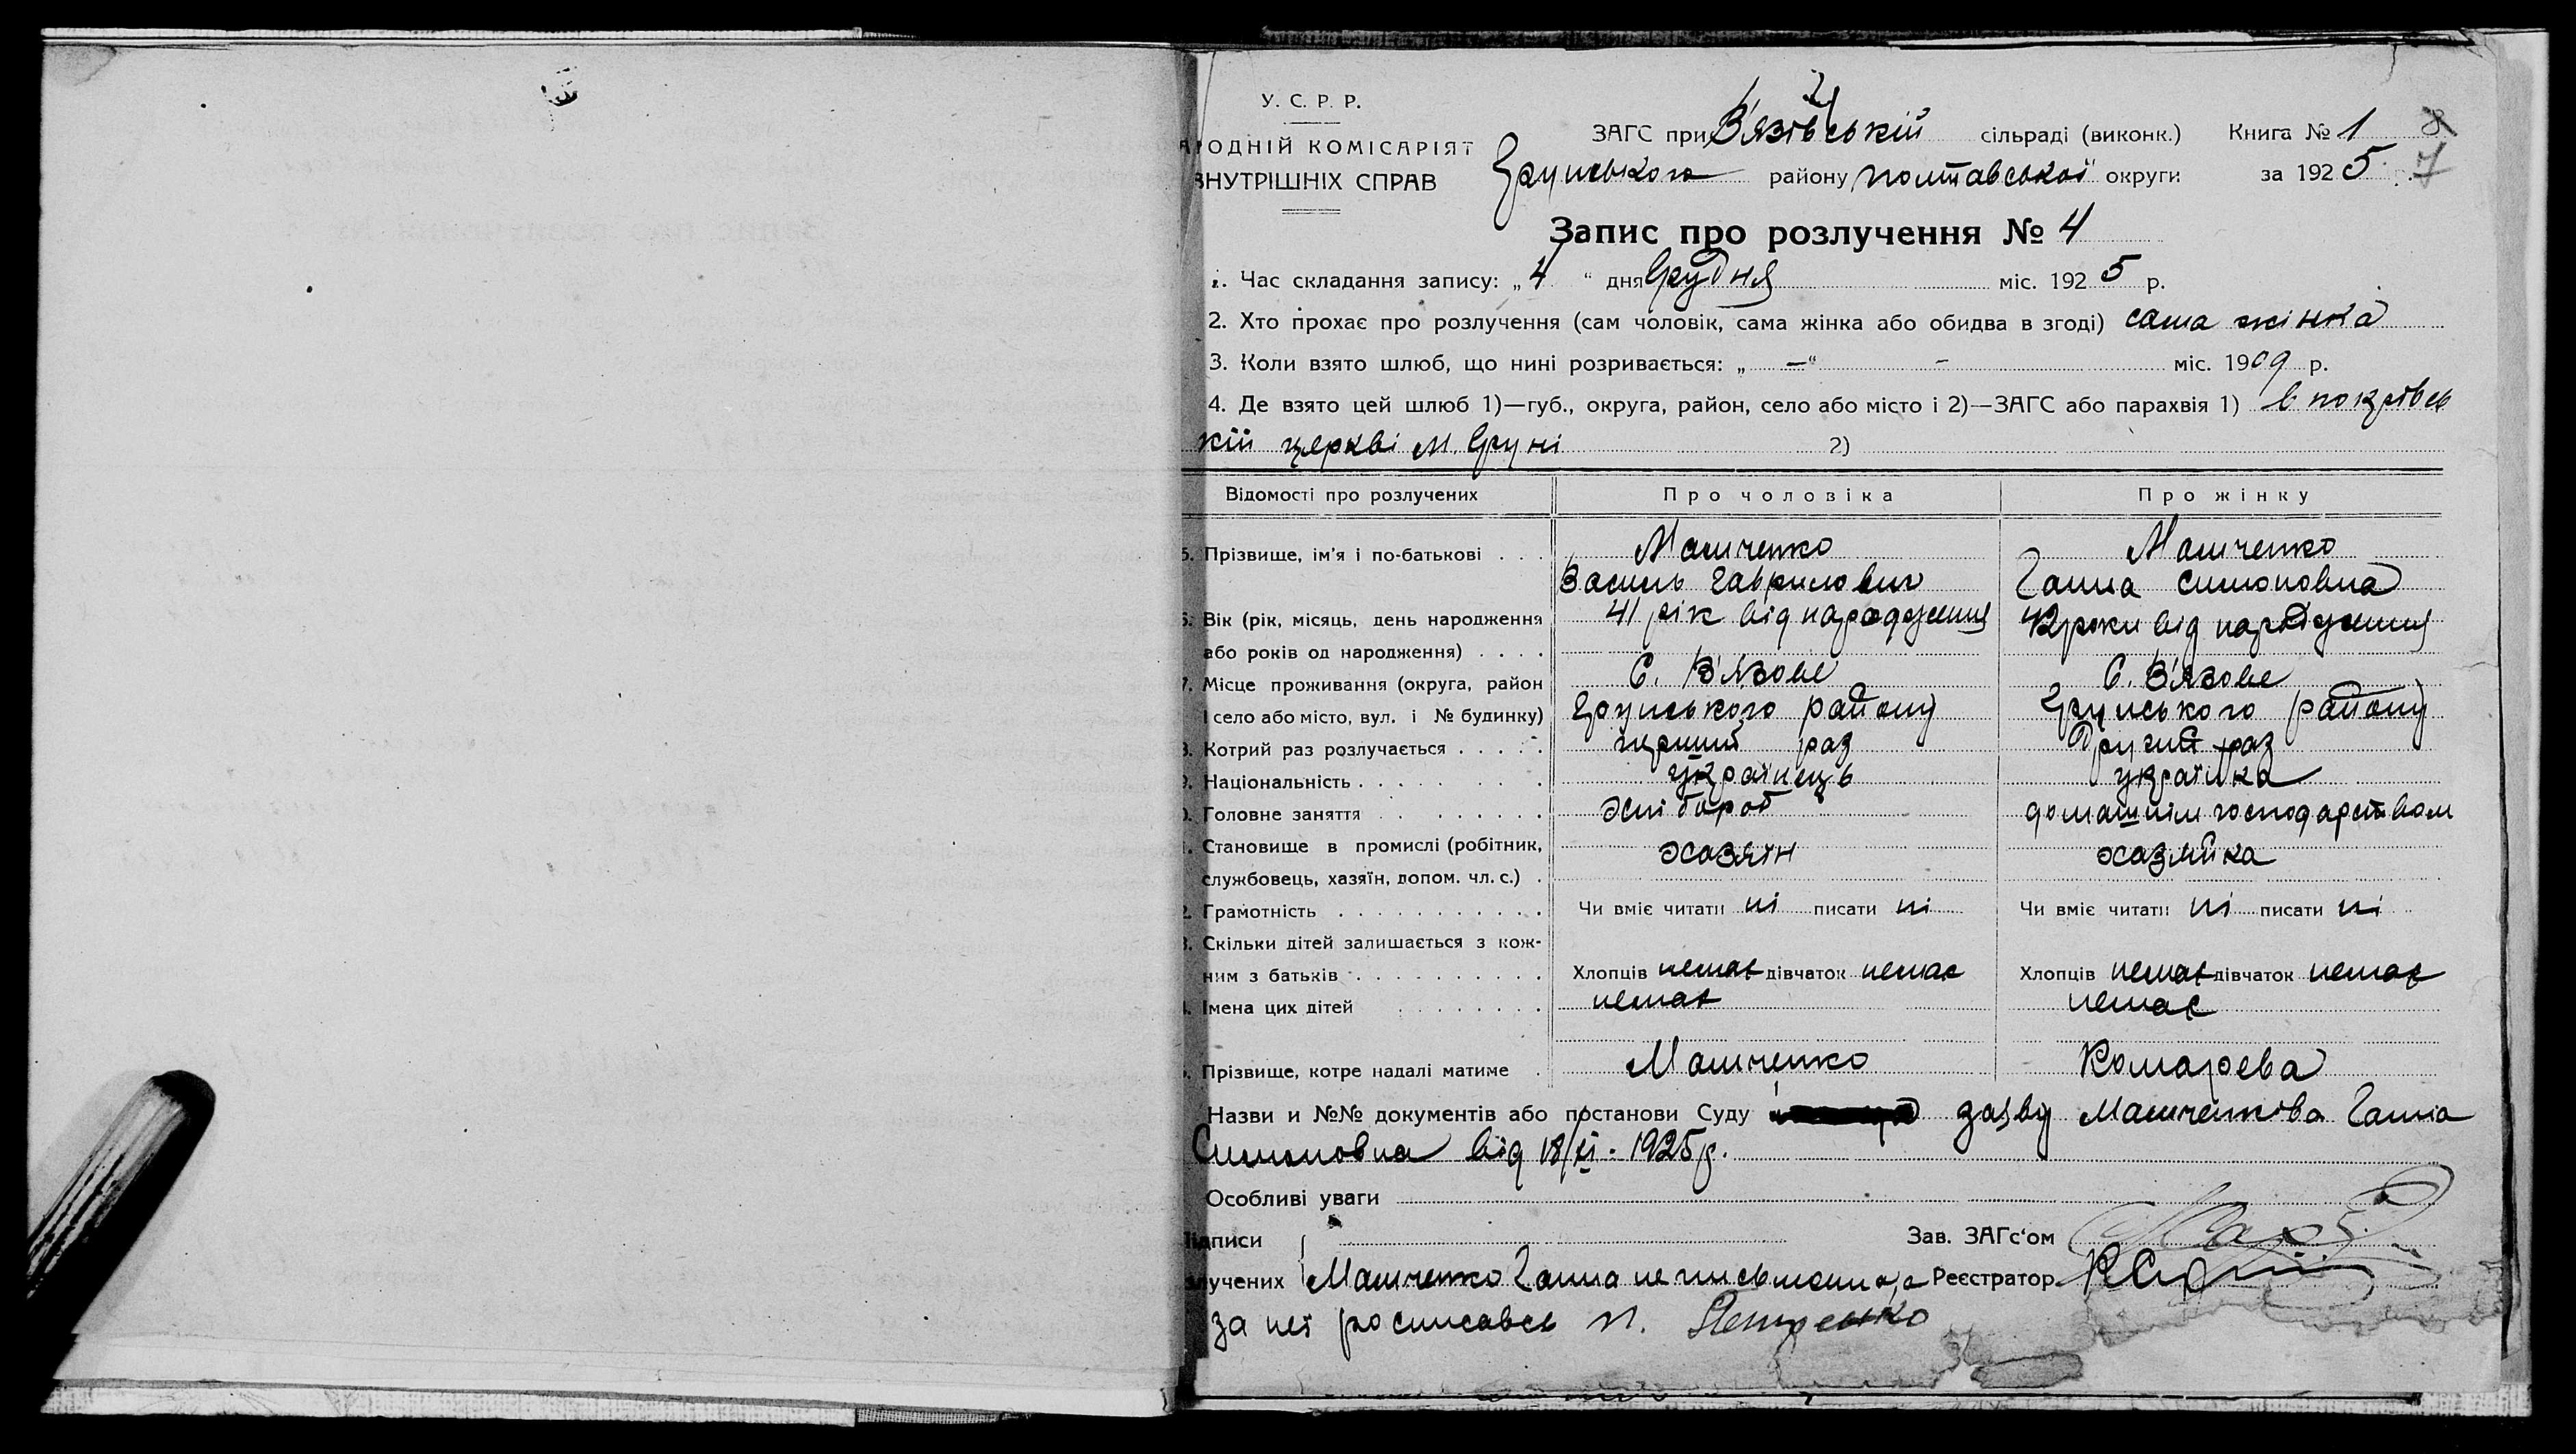 У. С. Р. Р.
РОДНІЙ КОМІСАРІЯТ
ВНУТРІШНІХ СПРАВ
ЗАГС при В'язівській сільраді (виконк.) Книга № 1
Грунського району полтавської округи за 1925 7
Запис про розлучення № 4
Час складання запису: „4“ дня Грудня міс. 1925 р.
2. Хто прохає про розлучення (сам чоловік, сама жінка або обидва в згоді) сама жінка
3. Коли взято шлюб, що нині розривається: „ — “ - міс. 1909 р.
4. Де взято цей шлюб 1)—губ., округа, район, село або місто і 2)—ЗАГС або парахвія 1) в покрівсь
кій церкві м. Груні 2)
Відомості про розлучених Про чоловіка Про жінку
Прізвище, ім'я і по-батькові . . . Машченко Машченко
Василь Гаврилович Ганна Симоновна
Вік (рік, місяць, день народження 41 рік від народження 42 роки від народження
або років од народження) . . . .
Місце проживання (округа, район С. В'язове С. В'язове
і село або місто, вул. і № будинку) Грунського району Грунського району
Котрий раз розлучається . . . . . перший раз другий раз
Національність . . . . . . . українець українка
Головне заняття . . . . . . . . хлібороб домашнім господарством
Становище в промислі (робітник, хазяїн хазяйка
службовець, хазяїн, допом. чл. с.) .
Грамотність . . . . . . . . . . . Чи вміє читати ні писати ні Чи вміє читати ні писати ні
Скільки дітей залишається з кож-
ним з батьків . . . . . . . . . . Хлопців немає дівчаток немає Хлопців немає дівчаток немає
Імена цих дітей . . . . . . . . немає немає
Прізвище, котре надалі матиме . Машченко Комарева
Назви и №№ документів або постанови Суду заяву Машченкова Ганна
Симоновна від 18/XI - 1925 р.
Особливі уваги
ідписи Зав. ЗАГс‘ом
лучених Машченко Ганна не письменна, а Реєстратор
за неї росписавсь п. Петренко